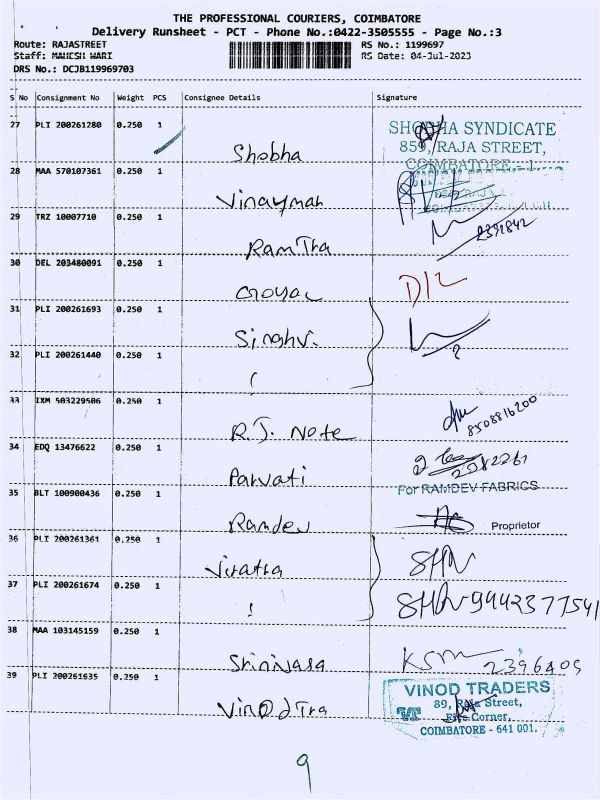 THE PROFESSIONAL COURIERS, COIMBATORE
Delivery Runsheet - PCT - Phone No.:0422-3505555 - Page No.:3
Route: RAJASTREET RS No.: 1199697
Staff: MAHESH WARI RS Date: 04-Jul-2023
DRS No.: DCJB119969703
S No Consignment No Weight PCS Consignee Details Signature
27 PLI 200261280 0.250 1
Shobha
SHOBHA SYNDICATE
859, RAJA STREET,
COIMBATORE - 1.
28 MAA 570107361 0.250 1
Vinaymah
29 TRZ 10007710 0.250 1
RamTra
2391842
30 DEL 203480091 0.250 1
Goyal
D/L
31 PLI 200261693 0.250 1
Singhvi
32 PLI 200261440 0.250 1
33 IXM 503229506 0.250 1
R.J. Note
8508816200
34 EDQ 13476622 0.250 1
Parvati
2382261
35 BLT 100900436 0.250 1
Ramdev
For RAMDEV FABRICS
Proprietor
36 PLI 200261361 0.250 1
Viratra
37 PLI 200261674 0.250 1
9442377541
38 MAA 103145159 0.250 1
Srinivasa
KSM 2396405
39 PLI 200261635 0.250 1
Vinod Tra
VINOD TRADERS
89, Raja Street,
Fire Corner,
COIMBATORE - 641 001.
9